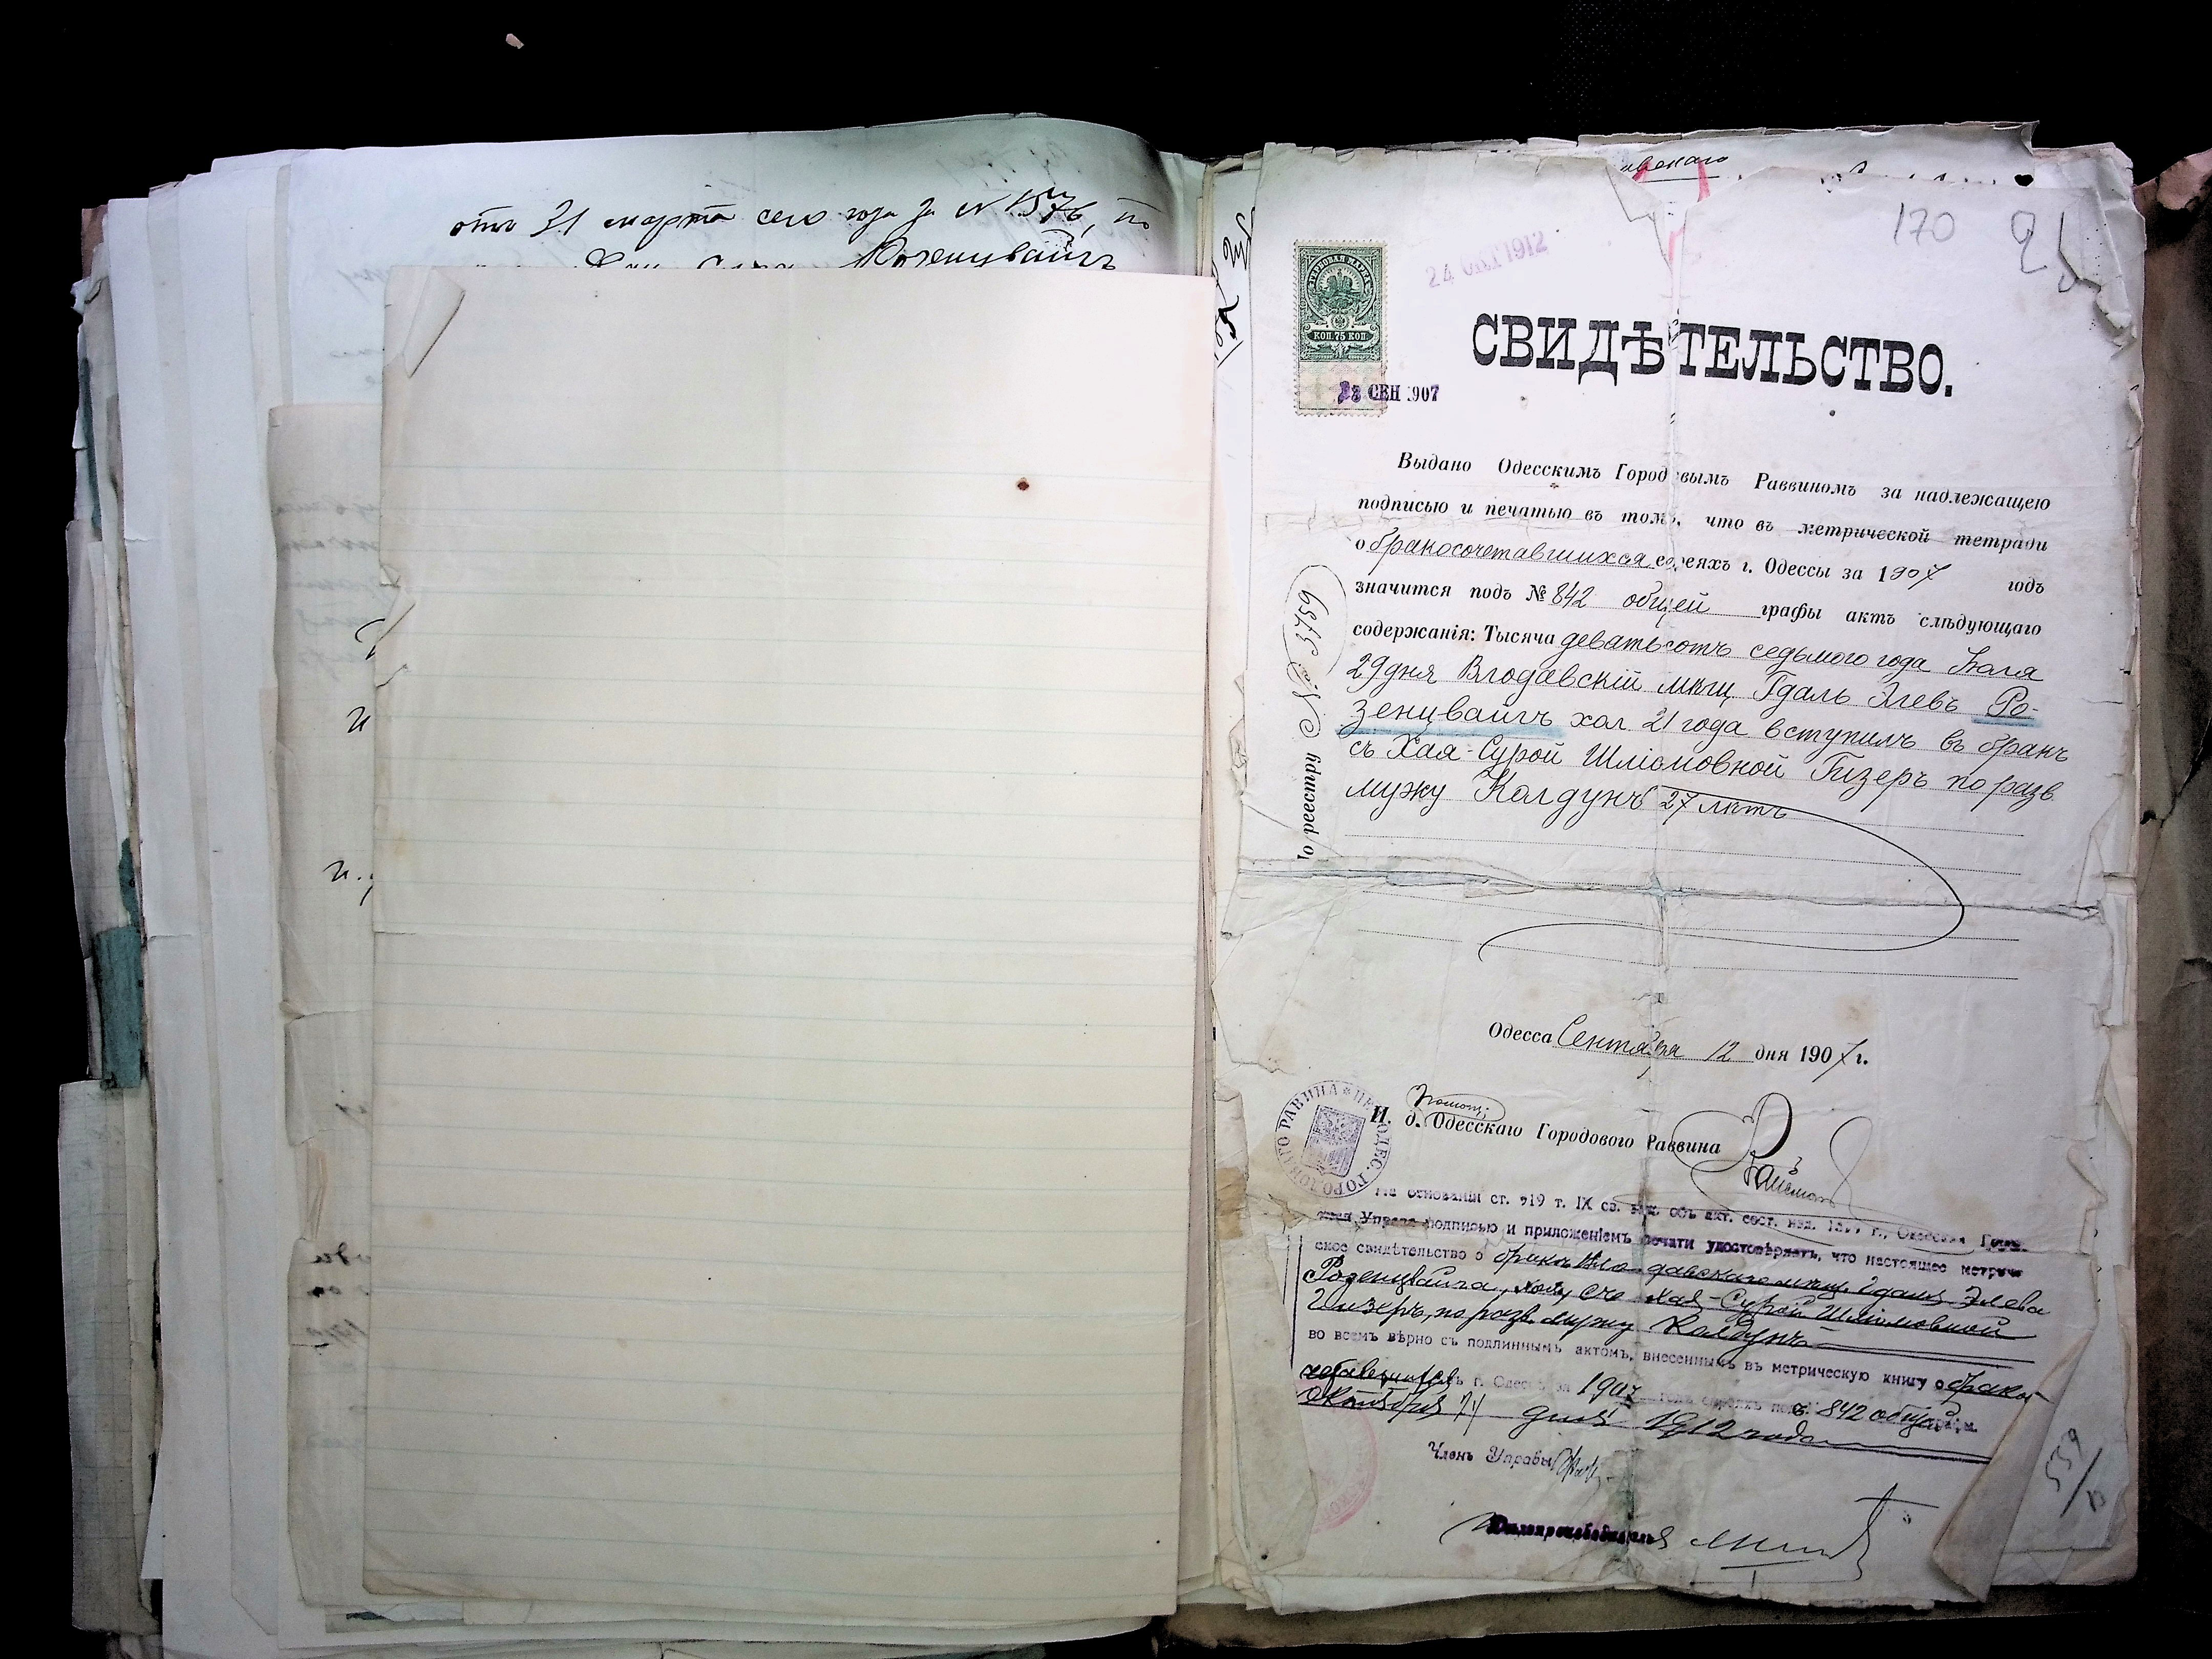 отъ 31 марта сего года за № 1576, по
Розенцвайгъ
170
24 ОКТ 1912
ГЕРБОВАЯ МАРКА
КОП. 75 КОП.
СЕН 1907
СВИДѢТЕЛЬСТВО.
Выдано Одесскимъ Городовымъ Раввиномъ за надлежащею
подписью и печатью въ томъ, что въ метрической тетради
о бракосочетавшихся евреяхъ г. Одессы за 1907 годъ
значится подъ № 842 общей графы актъ слѣдующаго
содержанія: Тысяча девятьсотъ седьмого года Іюля
29 дня Влодавскій мѣщ Гдаль Элевъ Ро-
зенцвайгъ хол. 21 года вступилъ въ бракъ
съ Хая-Сурой Шліомовной Гизеръ по разв
мужу Колдунъ 27 лѣтъ
По реестру № 3759
Одесса Сентября 12 дня 1907 г.
Помощ.
И. д. Одесскаго Городового Раввина
На основаніи ст. 919 т. IX св. зак. объ акт. сост. изд. г., Одесская Город.
ская Управа подписью и приложеніемъ печати удостовѣряетъ, что настоящее метриче
ское свидѣтельство о бракѣ Влодавскаго мѣщ. Гдаля Элева
Розенцвайга, хол, съ Хая-Сурой Шліомовной
Гизеръ, по разв. мужу Колдунъ
во всемъ вѣрно съ подлиннымъ актомъ, внесеннымъ въ метрическую книгу о брако
сочетавшихся г. Одессы за 1907 годъ евреяхъ подъ № 842 общей графы.
Октября дня 1912 года
Членъ Управы
Дѣлопроизводитель
559